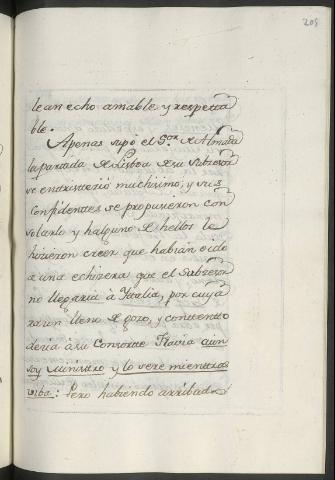 205
le an echo amable, y respetta
ble.
Apenas supo el S.or de Almada
la partada de Lisboa de su Subcesor
se entristecio muchisimo; y sus
Confidentes se propusieron con
solarlo y halguno de hellos le
hizieron creer que habian oido
a una echizera que el Subcesor
no llegaria à Italia, por cuya
razon lleno de gozo, y conttentto
decia à su Consorte Flavia aun
soy Ministro y lo sere mienttras
viba: Pero habiendo arribado